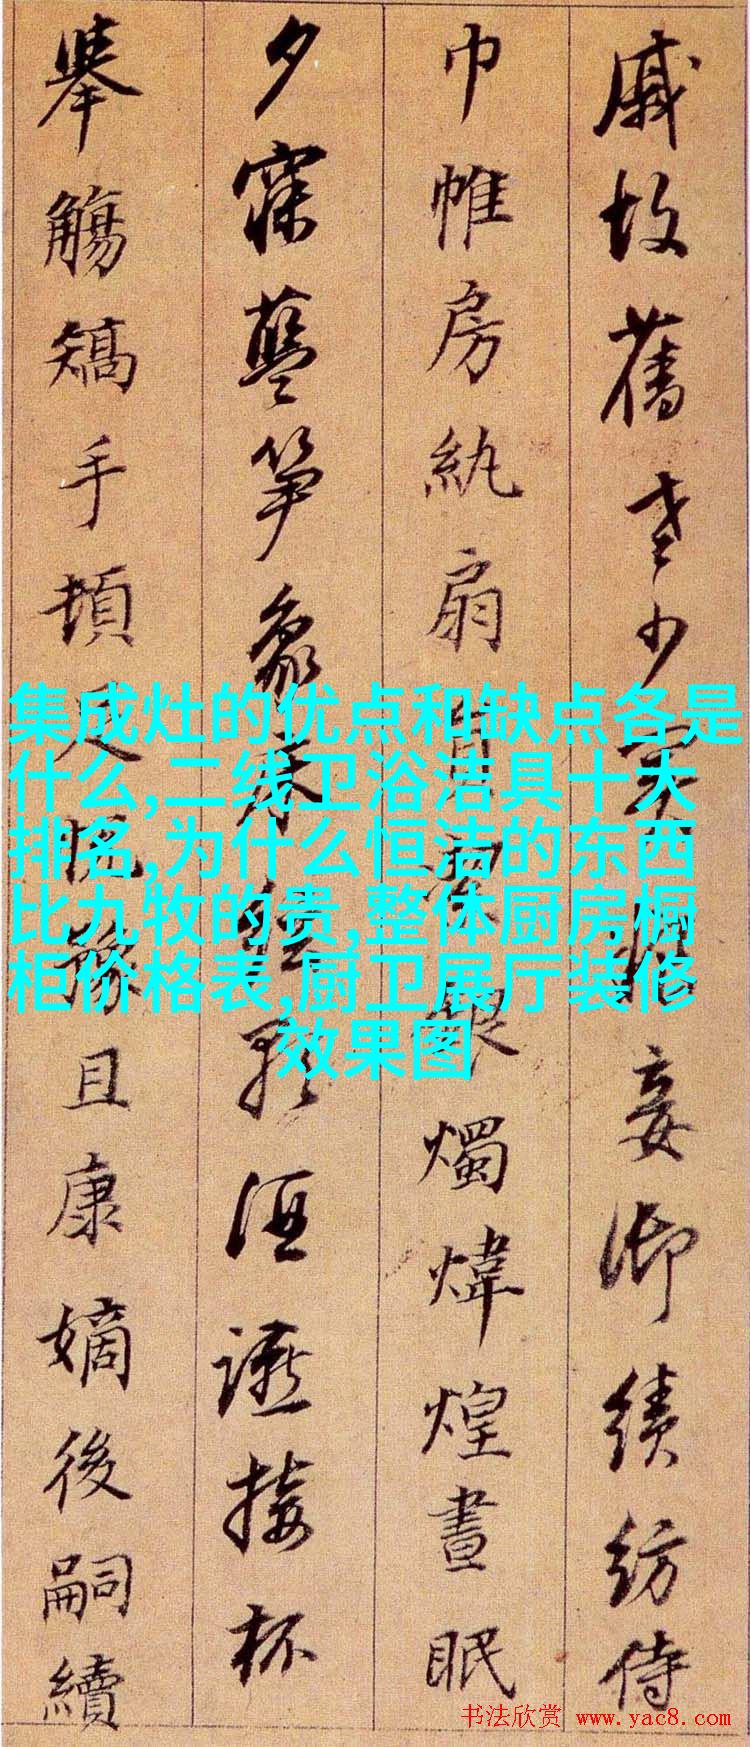 戚故舊老少異妾御績紡侍
巾帷房紈扇銀燭煒煌晝眠
夕寐藍笋象床絃歌酒讌接杯
舉觴矯手頓足悅豫且康嫡後嗣續
集成灶的优点和缺点各是
什么,二线卫浴洁具十大
排名,为什么恒洁的东西
比九牧的贵,整体厨房橱
柜价格表,厨卫展厅装修
效果图
书法欣赏 www.yac8.com